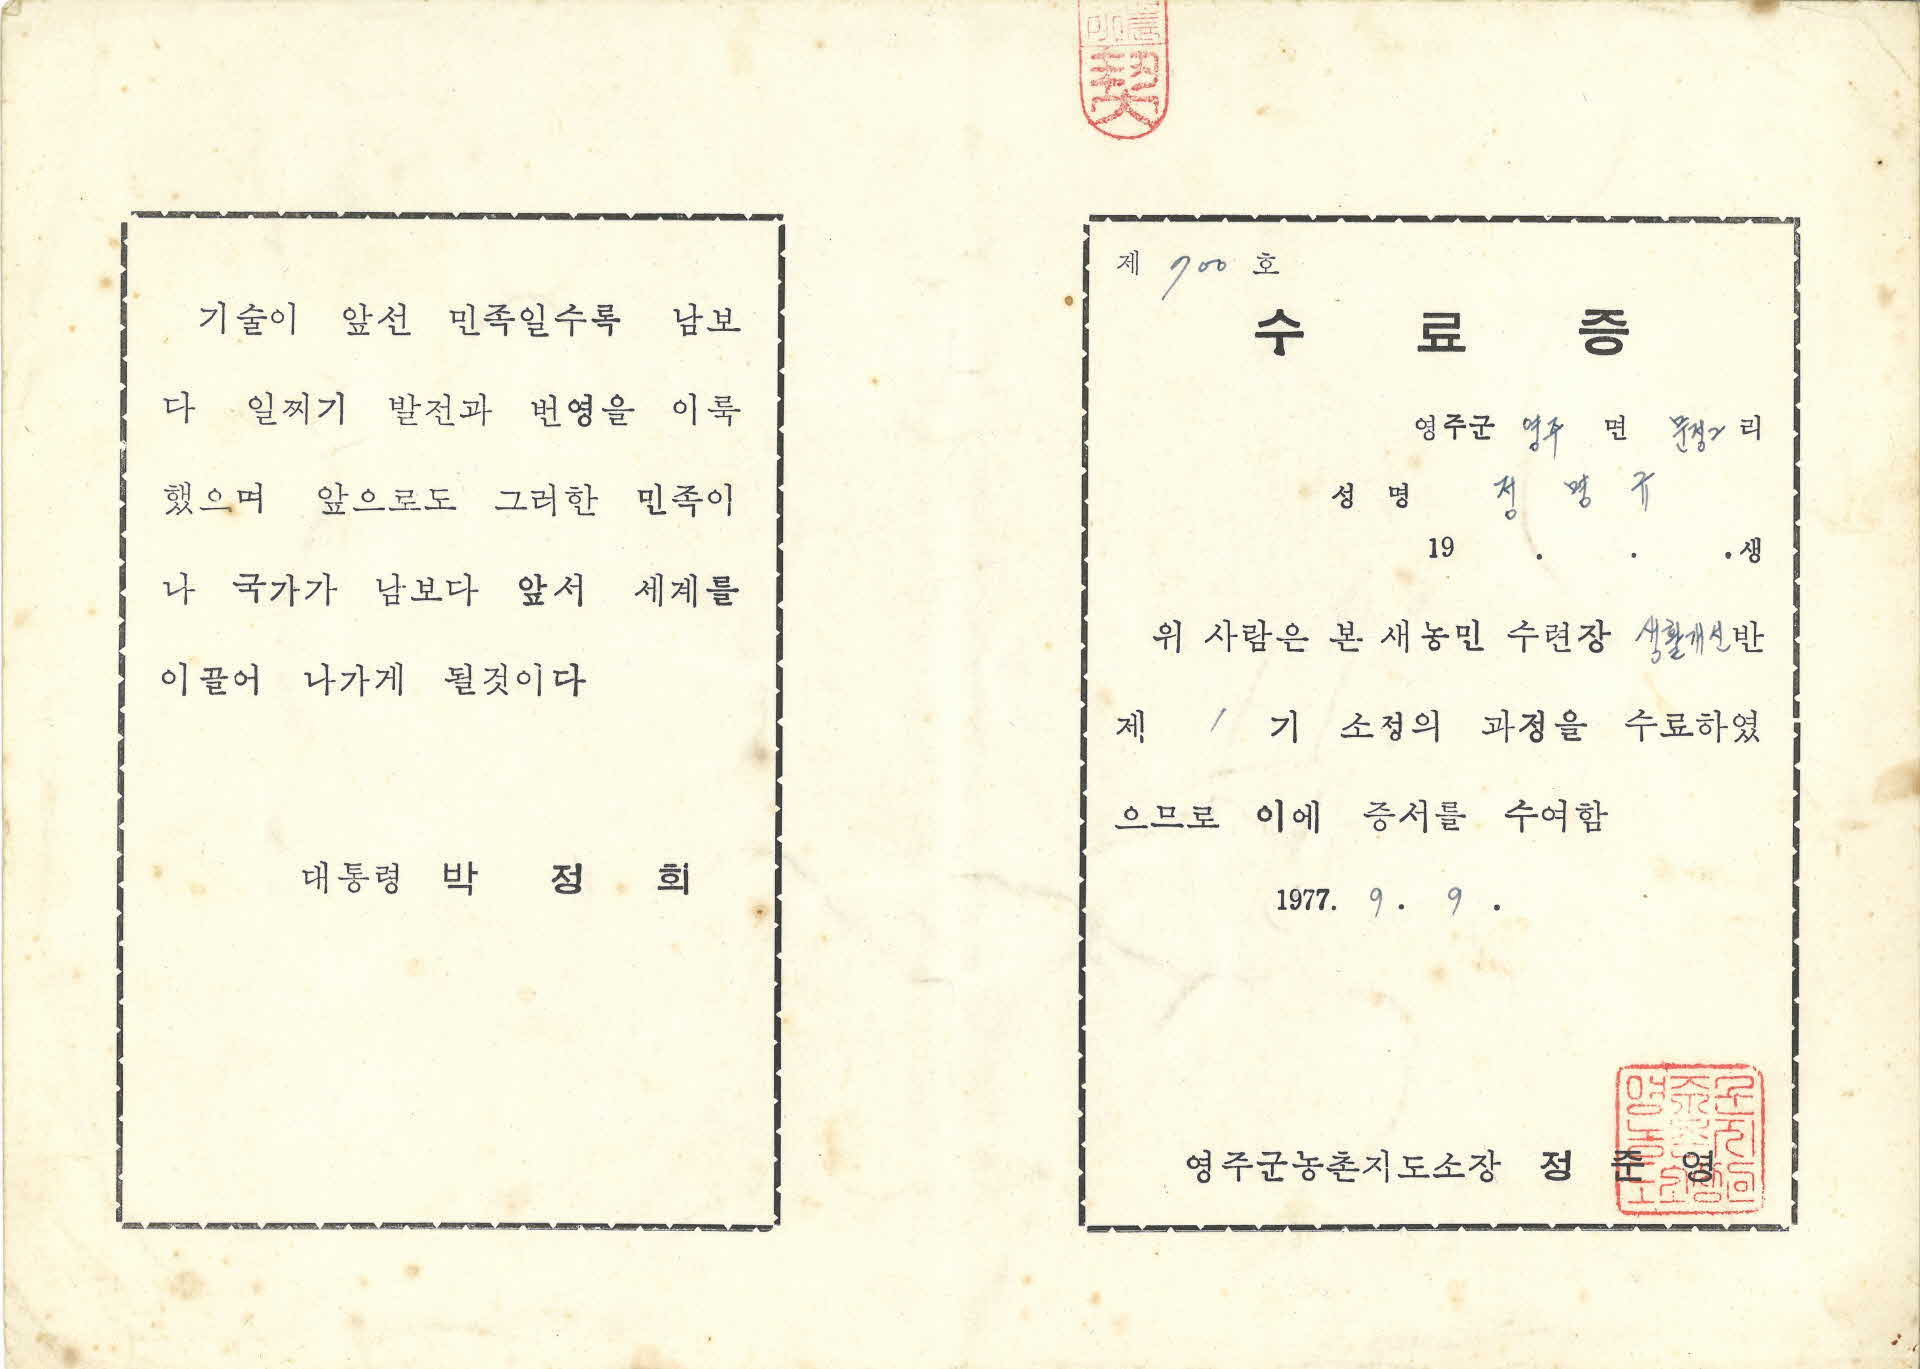 기술이 앞선 민족일수록 남보
다 일찌기 발전과 번영을 이룩
했으며 앞으로도 그러한 민족이
나 국가가 남보다 앞서 세계를
이끌어 나가게 될것이다
대통령 박 정 희
契
제 700 호
수 료 증
영주군 영주 면 문정2 리
성 명 정 명 규
19 . . .생
위 사람은 본 새농민 수련장 생활개선반
제 1 기 소정의 과정을 수료하였
으므로 이에 증서를 수여함
1977. 9. 9.
영주군농촌지도소장 정 준 영